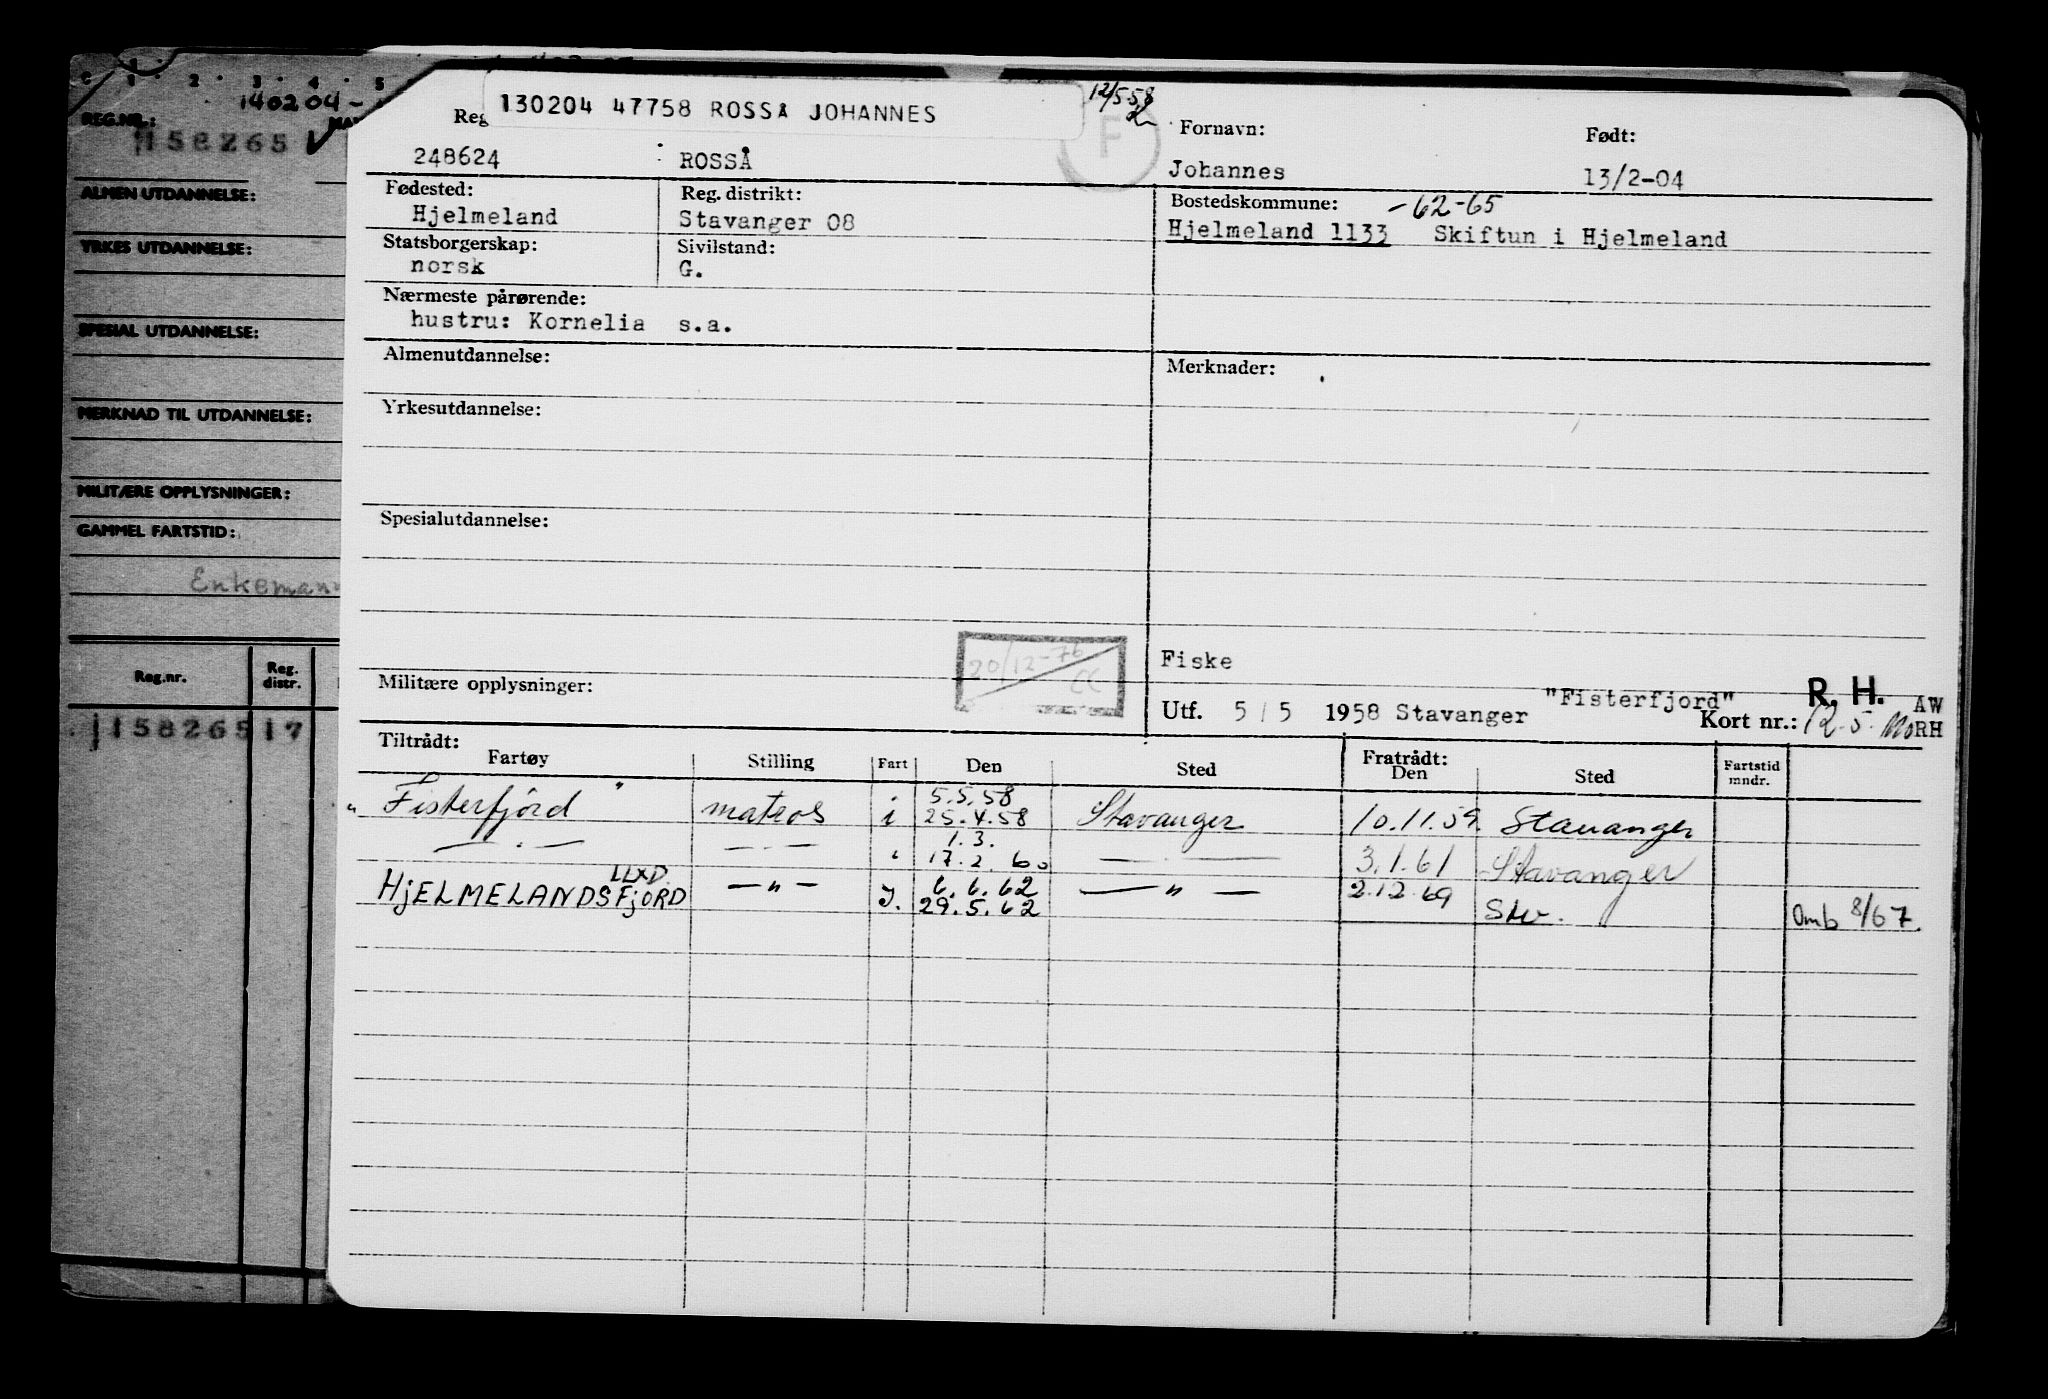 C 1 · 2 · 3 · 4 · 5
140204-
REG.NR.:
1158265 V
ALMEN UTDANNELSE:
YRKES UTDANNELSE:
SPESIAL UTDANNELSE:
MERKNAD TIL UTDANNELSE:
MILITÆRE OPPLYSNINGER:
GAMMEL FARTSTID:
Enkemann
Reg.nr. Reg. distr.
1158265 17
130204 47758 ROSSÅ JOHANNES
12/5 58
F
Reg Fornavn: Født:
248624 ROSSÅ Johannes 13/2-04
Fødested: Reg. distrikt: Bostedskommune: -62-65
Hjelmeland Stavanger 08 Hjelmeland 1133 Skiftun i Hjelmeland
Statsborgerskap: Sivilstand:
norsk G.
Nærmeste pårørende:
hustru: Kornelia s.a.
Almenutdannelse: Merknader:
Yrkesutdannelse:
Spesialutdannelse:
20/12-76
CC
Fiske
Militære opplysninger:
"Fisterfjord" R. H. AW
Utf. 5/5 1958 Stavanger Kort nr.: 12.5. RH
Tiltrådt: Fratrådt:
Fartøy Stilling Fart Den Sted Den Sted Fartstid mndr.
5.5.58
"Fisterfjord" matros i 25.4.58 Stavanger 10.11.59. Stavanger
1.3.
— . — — . — " 17.2.60 — . — 3.1.61 Stavanger
LLXD
HjELMELANDSFjORD — " — J. 6.6.62 — " — 2.12.69
29.5.62 Stv. Omb 8/67.